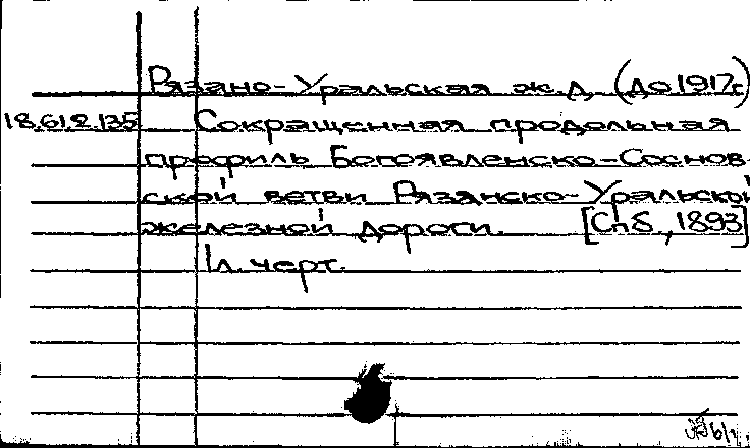 Рязано-Уральская ж.д. (до 1917г.)
18.61.2.135 Сокращенная продольная
профиль Богоявленско-Соснов-
ской ветви Рязанско-Уральской
железной дороги. [СПб, 1893]
1л. черт.